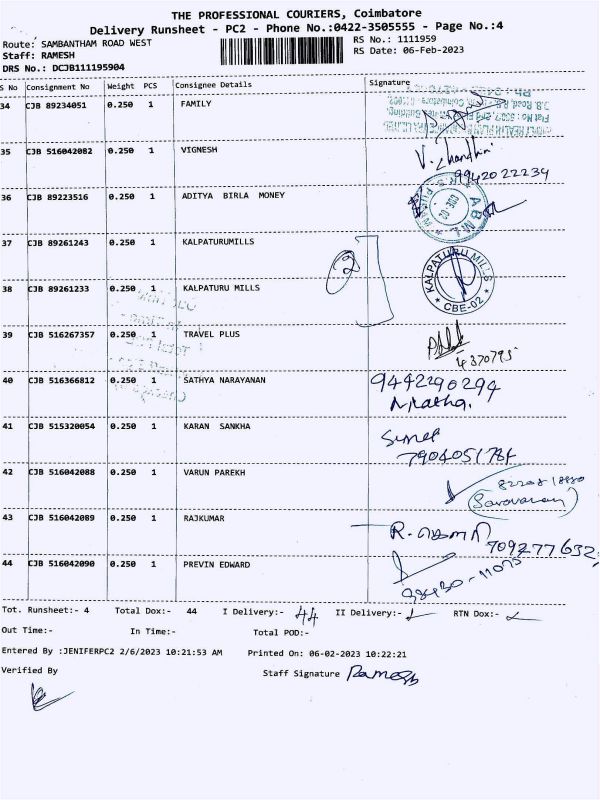 THE PROFESSIONAL COURIERS, Coimbatore
Delivery Runsheet - PC2 - Phone No.:0422-3505555 - Page No.:4
Route: SAMBANTHAM ROAD WEST
RS No.: 1111959
Staff: RAMESH
RS Date: 06-Feb-2023
DRS No.: DCJB111195904
S No Consignment No Weight PCS Consignee Details Signature
34 CJB 89234051 0.250 1 FAMILY
35 CJB 516042082 0.250 1 VIGNESH V. Chandhini
9942022234
36 CJB 89223516 0.250 1 ADITYA BIRLA MONEY A B M L
CBE - 02
37 CJB 89261243 0.250 1 KALPATURUMILLS
2
KALPATURU MILLS
CBE-02
38 CJB 89261233 0.250 1 KALPATURU MILLS
39 CJB 516267357 0.250 1 TRAVEL PLUS
4370795
40 CJB 516366812 0.250 1 SATHYA NARAYANAN 9442290294
41 CJB 515320054 0.250 1 KARAN SANKHA
42 CJB 516042088 0.250 1 VARUN PAREKH
(Saravanan)
43 CJB 516042089 0.250 1 RAJKUMAR
7092777632
44 CJB 516042090 0.250 1 PREVIN EDWARD
98430-11075
Tot. Runsheet:- 4 Total Dox:- 44 I Delivery:- 44 II Delivery:- RTN Dox:-
Out Time:- In Time:- Total POD:-
Entered By :JENIFERPC2 2/6/2023 10:21:53 AM Printed On: 06-02-2023 10:22:21
Verified By Staff Signature Ramesh